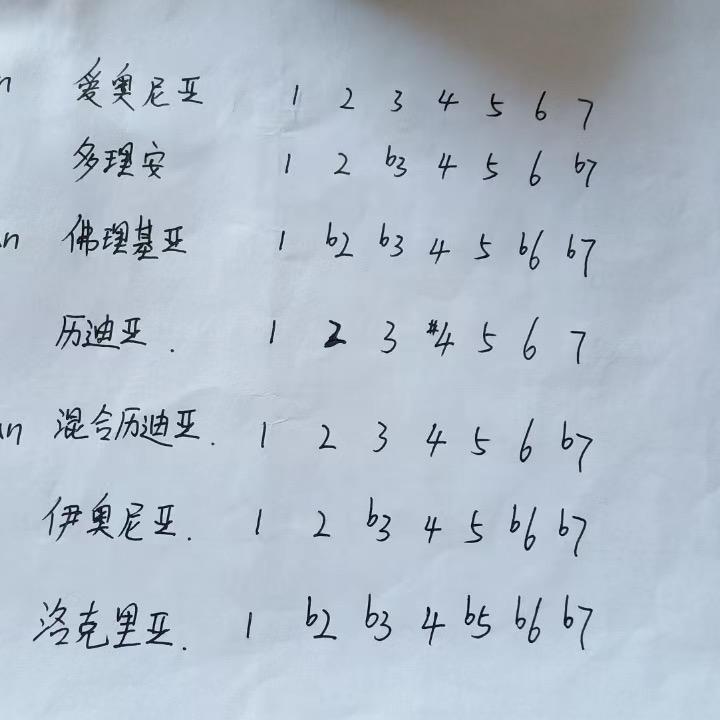 爱奥尼亚 1 2 3 4 5 6 7
多理安 1 2 b3 4 5 6 b7
佛理基亚 1 b2 b3 4 5 b6 b7
历迪亚. 1 2 3 #4 5 6 7
混合历迪亚. 1 2 3 4 5 6 b7
伊奥尼亚. 1 2 b3 4 5 b6 b7
洛克里亚. 1 b2 b3 4 b5 b6 b7